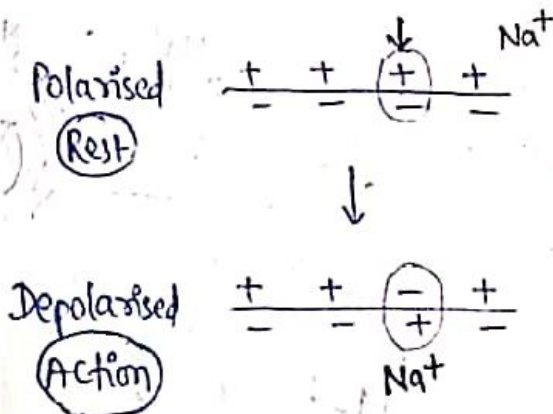 Na+
Polarised + + + +
(Rest) − − − −
↓
Depolarised + + − +
(Action) − − + −
Na+